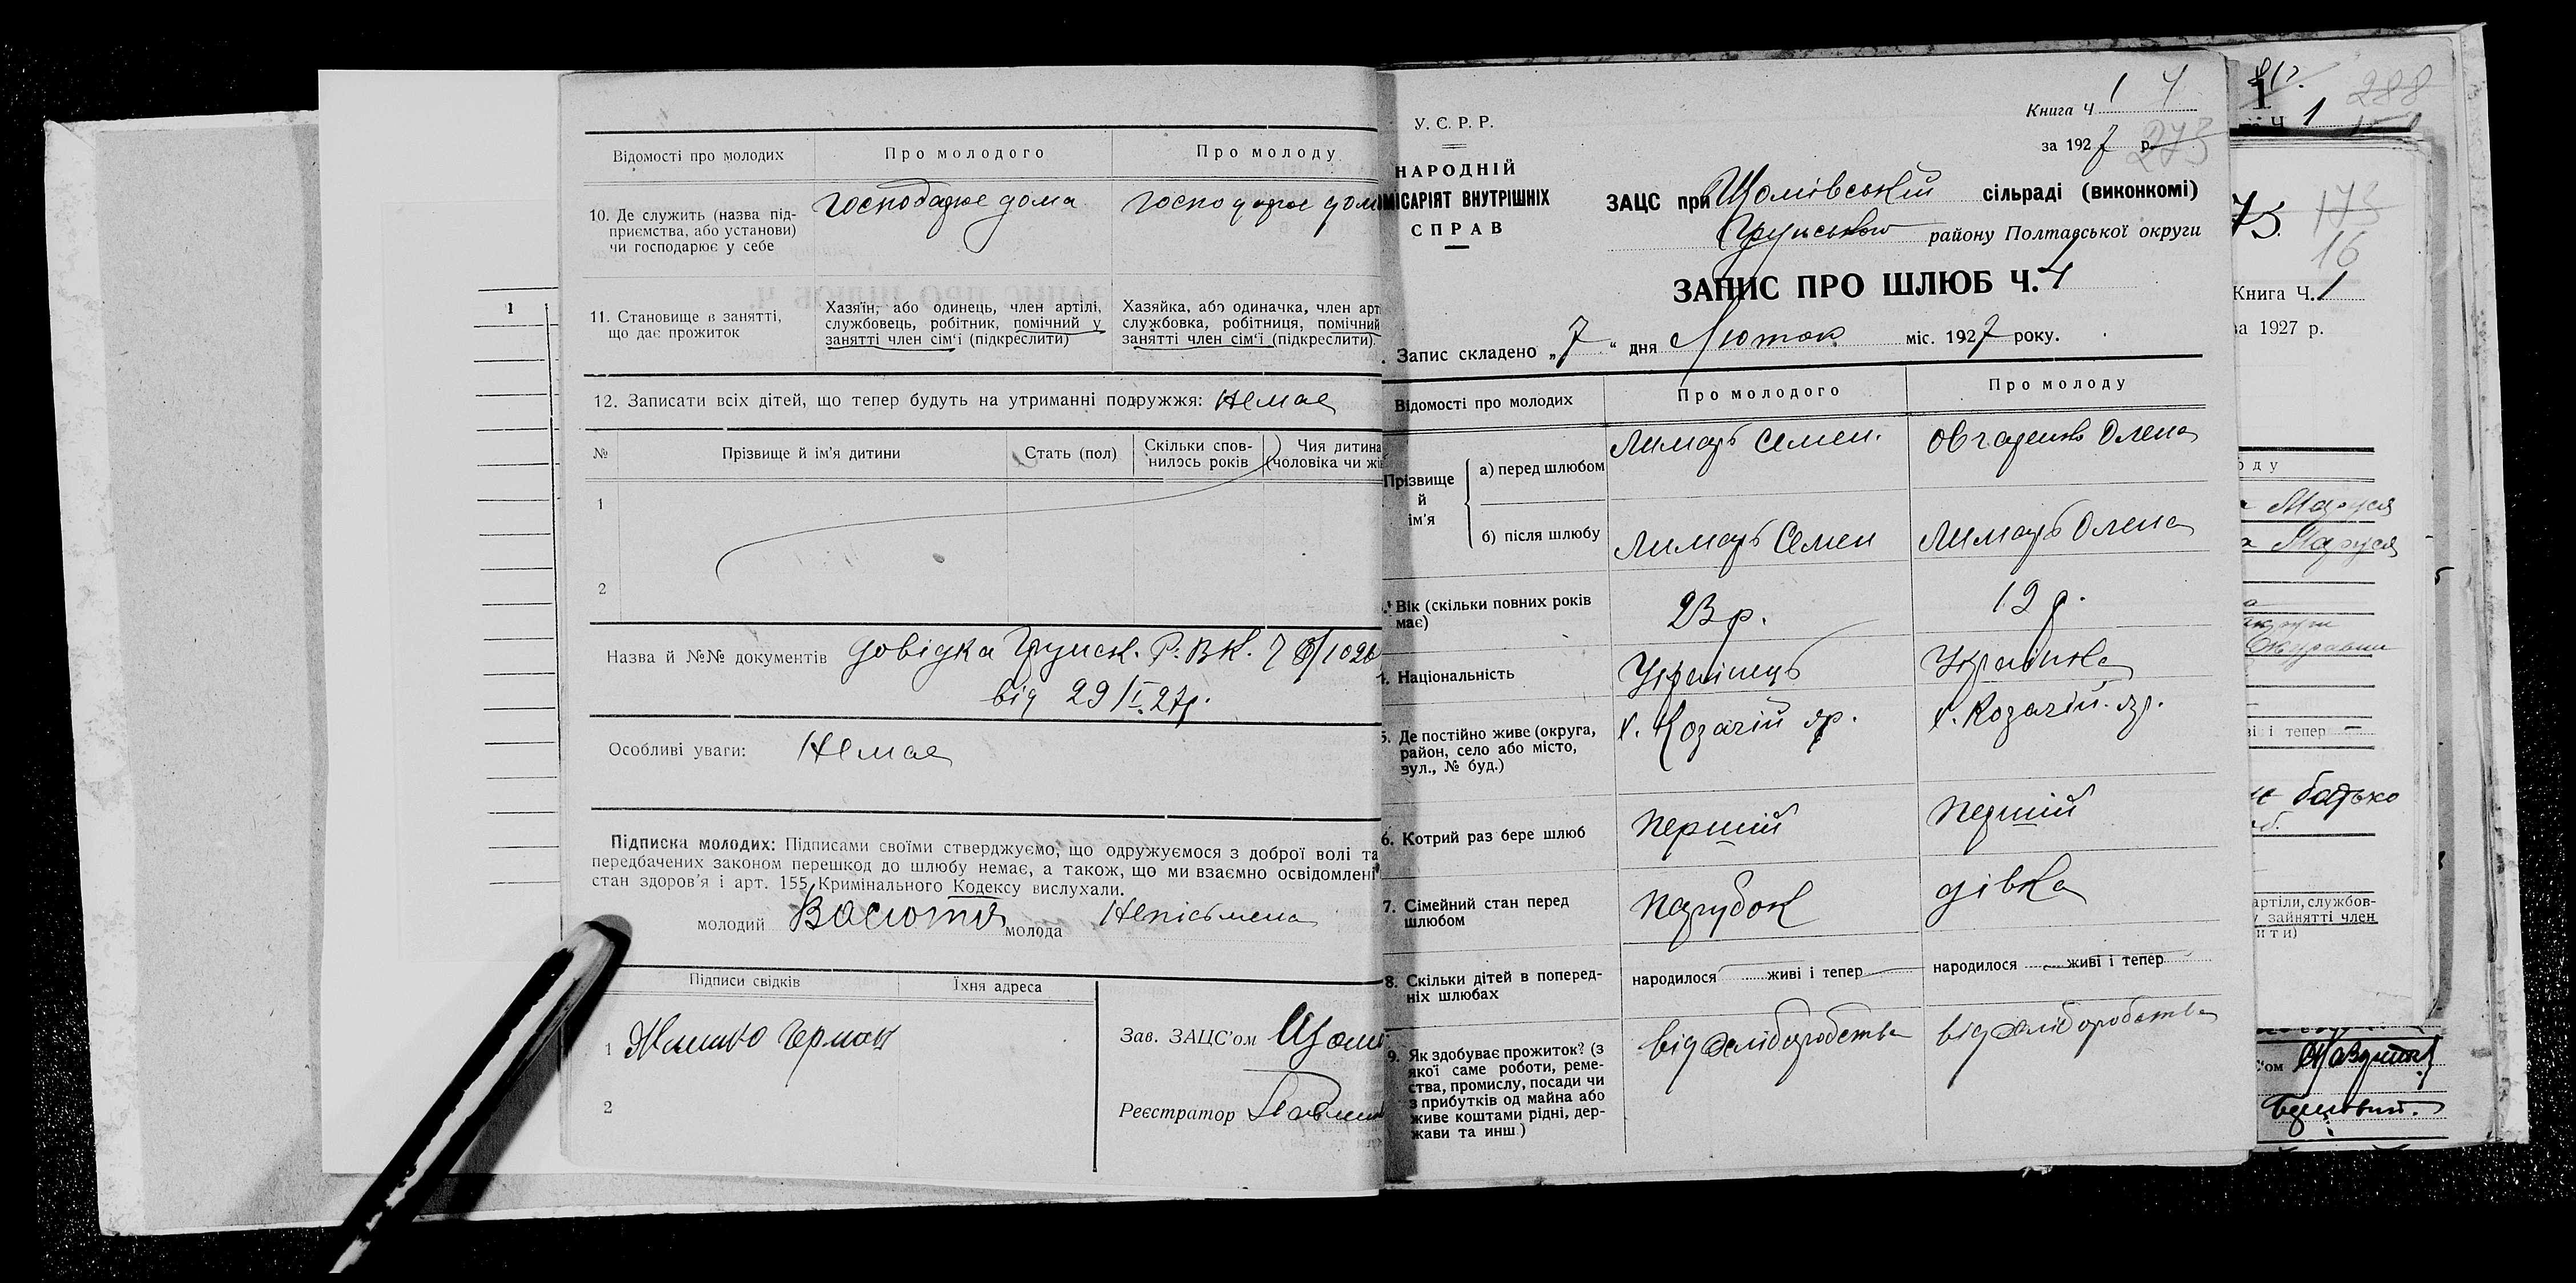 Відомості про молодих
Про молодого
Про молоду
10. Де служить (назва під-
приємства, або установи)
чи господарює у себе
господарює дома
господарює дома
11. Становище в занятті,
що дає прожиток
Хазяїн, або одинець, член артілі,
службовець, робітник, помічний у
занятті член сім'ї (підкреслити)
Хазяйка, або одиначка, член арт
службовка, робітниця, помічний
занятті член сім'ї (підкреслити).
12. Записати всіх дітей, що тепер будуть на утриманні подружжя: Немає
№
Прізвище й ім'я дитини
Стать (пол)
Скільки спов-
нилось років
Чия дитина
(чоловіка чи жі
1
2
Назва й №№ документів Довідка Грунск. Р.В.К.
від 29/I 27р.
Особливі уваги: Немає
Підписка молодих: Підписами своїми стверджуємо, що одружуємося з доброї волі та
передбачених законом перешкод до шлюбу немає, а також, що ми взаємно освідомлені
стан здоров'я і арт. 155 Кримінального Кодексу вислухали.
молодий
молода Непісьмена
Підписи свідків
Їхня адреса
1
2
Зав. ЗАЦС'ом
Реєстратор
1
У.С.Р.Р.
НАРОДНІЙ
МІСАРІЯТ ВНУТРІШНІХ
СПРАВ
Книга Ч 1 4
за 1927 р. 273
ЗАЦС при Щомівській сільраді (виконкомі)
Грунського району Полтавської округи
ЗАПИС ПРО ШЛЮБ Ч. 4
Запис складено „7" дня Люток міс. 1927 року.
Відомості про молодих
Про молодого
Про молоду
Прізвище
й
ім'я
а) перед шлюбом
Лимарь Семен.
Овчаренко Олена
б) після шлюбу
Лимарь Семен
Лимарь Олена
Вік (скільки повних років
має)
23 р.
19 р.
Національність
Українець
Українка
5. Де постійно живе (округа,
район, село або місто,
вул., № буд.)
х. Козачій яр.
х. Козачій яр.
6. Котрий раз бере шлюб
Перший
Перший
7. Сімейний стан перед
шлюбом
Парубок
дівка
8. Скільки дітей в поперед-
ніх шлюбах
народилося живі і тепер
народилося живі і тепер
9. Як здобуває прожиток? (з
якої саме роботи, реме-
ства, промислу, посади чи
з прибутків од майна або
живе коштами рідні, дер-
жави та инш.)
від хліборобства
від хліборобства
1 288
Ч 1
75. 173
16
Книга Ч. 1
за 1927 р.
оду
Маруся
Маруся
ві і тепер
батько
артіли, службов-
у зайнятті член
ити)
'ом